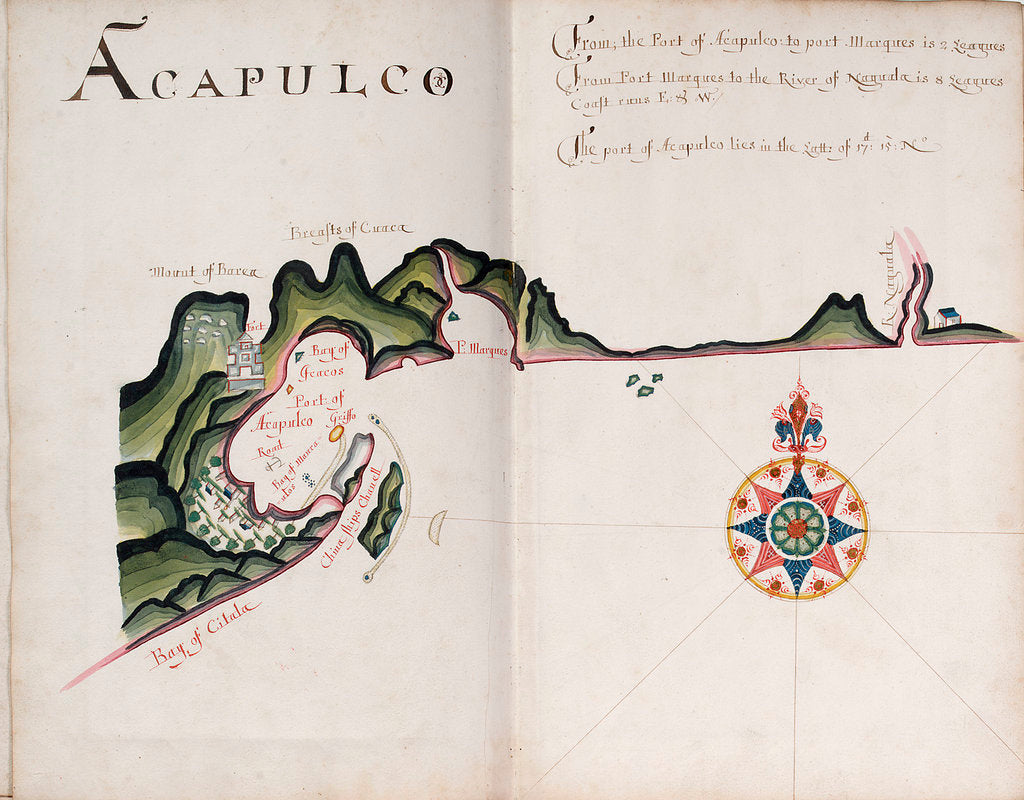 ACAPULCO
From, the Port of Acapulco: to port Marques is 2 Leagues
From Port Marques to the River of Naguala is 8 Leagues
Coast runs E. & W.
The port of Acapulco lies in the Latt: of 17d: 15: No
Breasts of Cuaca
Mount of Barea
R. Naguala
Fort
Bay of
Gracos
P. Marques
Port of
Acapulco
Griffo
Road
Bay of Manca
China ships Chanell
Bay of Citala